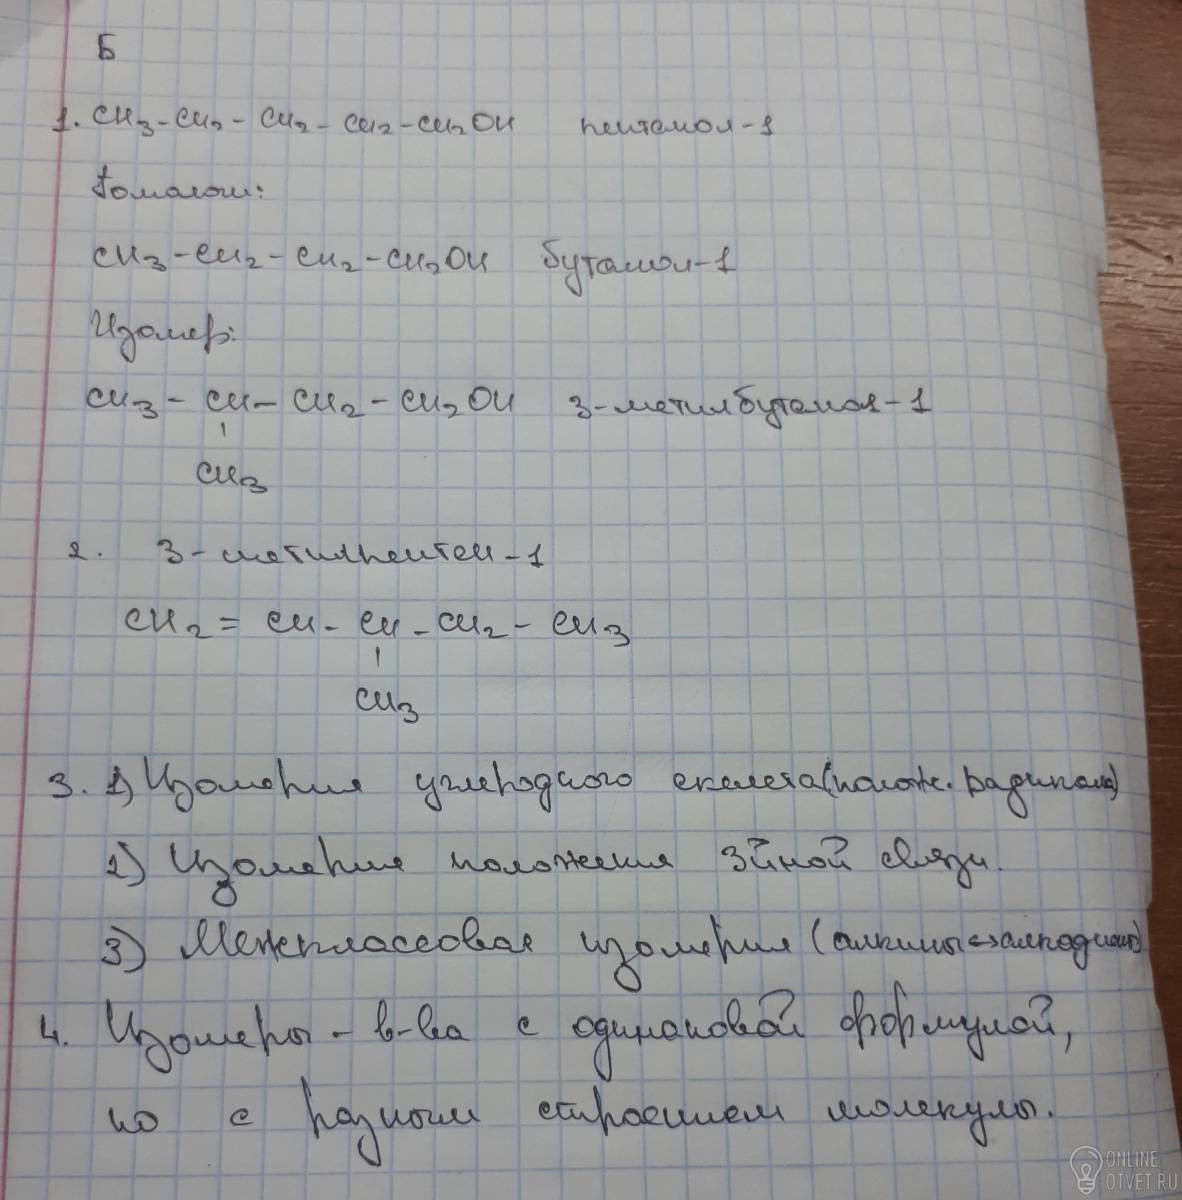 Б
1. CH3-CH2-CH2-CH2-CH2OH пентанол-1
Гомолог:
CH3-CH2-CH2-CH2OH бутанол-1
Изомер:
CH3-CH-CH2-CH2OH 3-метилбутанол-1
CH3
2. 3-метилпентен-1
CH2=CH-CH-CH2-CH3
CH3
3. 1) Изомерия углеродного скелета (полож. радикала)
2) Изомерия положения 3йной связи.
3) Межклассовая изомерия (алкины<->алкодиены)
4. Изомеры - в-ва с одинаковой формулой,
но с разным строением молекулы.
ONLINE
OTVET.RU